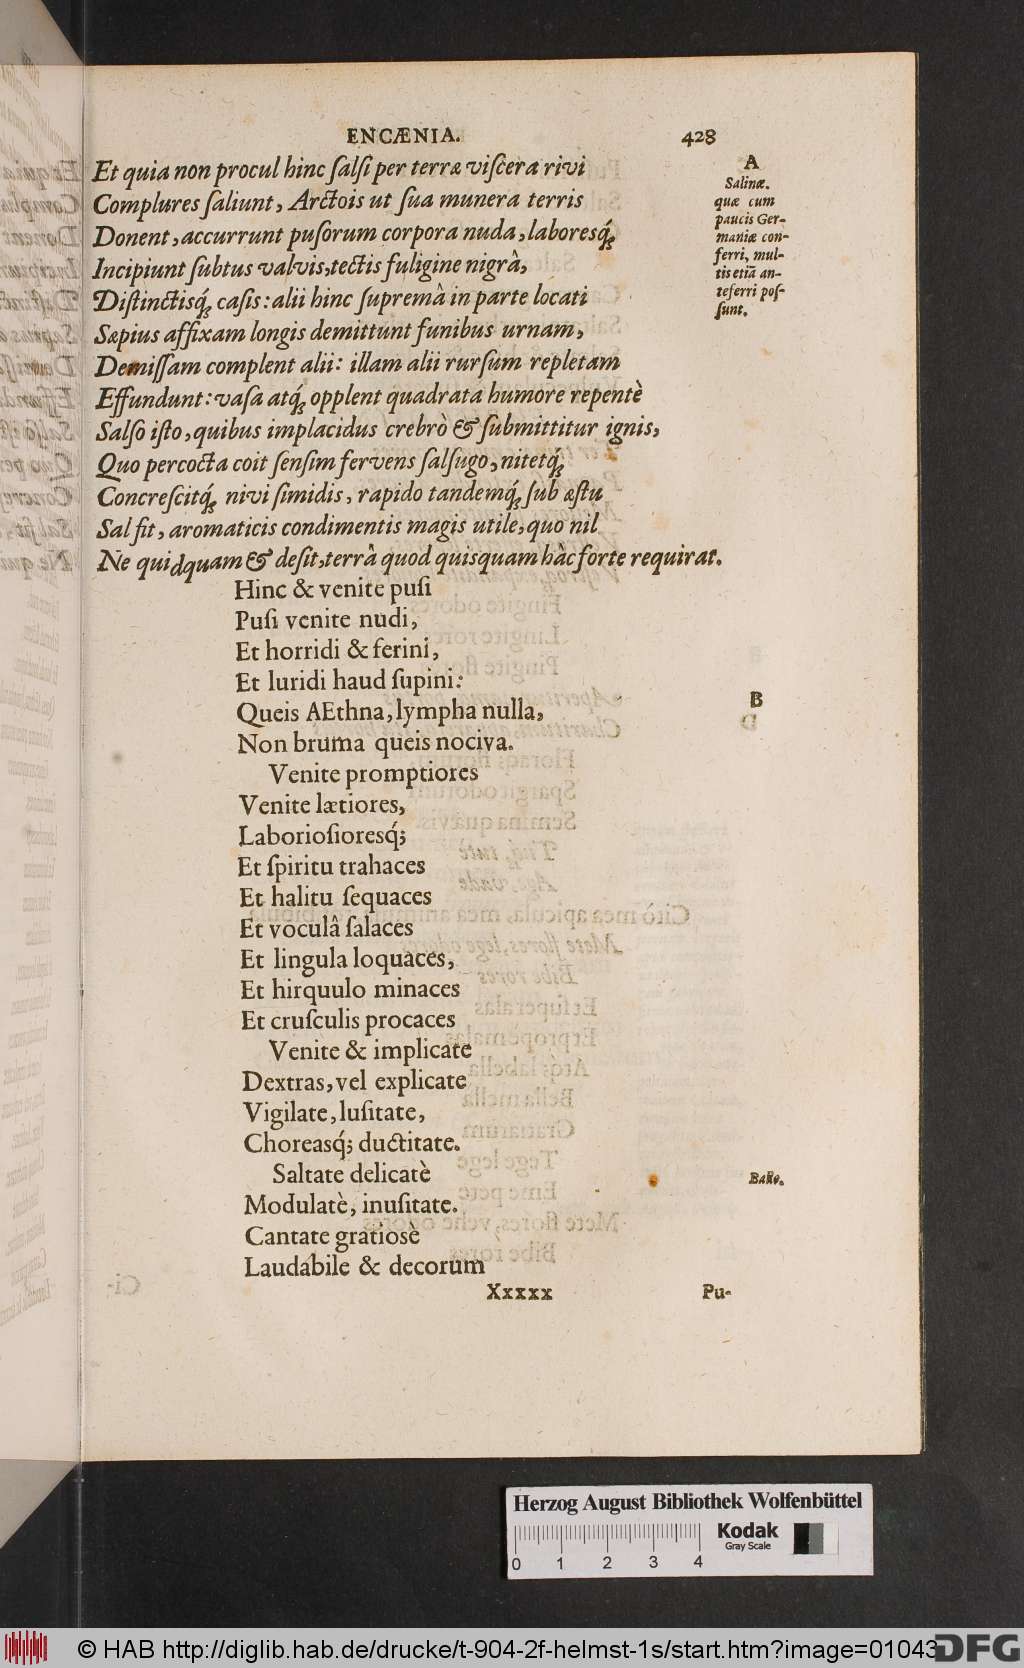 ENCÆNIA.
428
Et quia non procul hinc ſalſi per terræ viſcera rivi
Complures ſaliunt, Arctois ut ſua munera terris
Donent, accurrunt puſorum corpora nuda, laboresq́;
Incipiunt ſubtus valvis, tectis fuligine nigrâ,
Diſtinctisq́; caſis: alii hinc ſupremâ in parte locati
Sæpius affixam longis demittunt funibus urnam,
Demiſſam complent alii: illam alii rurſum repletam
Effundunt: vaſa atq́; opplent quadrata humore repentè
Salſo iſto, quibus implacidus crebrò & ſubmittitur ignis,
Quo percocta coit ſenſim fervens ſalſugo, nitetq́;
Concreſcitq́; nivi ſimidis, rapido tandemq́; ſub æſtu
Sal fit, aromaticis condimentis magis utile, quo nil
Ne quidquam & deſit, terrâ quod quisquam hâc forte requirat.
A
Salinæ.
quæ cum
paucis Ger-
maniæ con-
ferri, mul-
tis etiã an-
teferri poſ-
ſunt.
Hinc & venite puſi
Puſi venite nudi,
Et horridi & ferini,
Et luridi haud ſupini:
Queis AEthna, lympha nulla,
B
Non bruma queis nociva.
Venite promptiores
Venite lætiores,
Laborioſioresq́;
Et ſpiritu trahaces
Et halitu ſequaces
Et voculâ ſalaces
Et lingula loquaces,
Et hirquulo minaces
Et cruſculis procaces
Venite & implicate
Dextras, vel explicate
Vigilate, luſitate,
Choreasq́; ductitate.
Saltate delicatè
Modulatè, inuſitate.
Cantate gratiosè
Laudabile & decorum
Xxxxx
Pu-
Herzog August Bibliothek Wolfenbüttel
Kodak
Gray Scale
0 1 2 3 4
© HAB http://diglib.hab.de/drucke/t-904-2f-helmst-1s/start.htm?image=01043
DFG